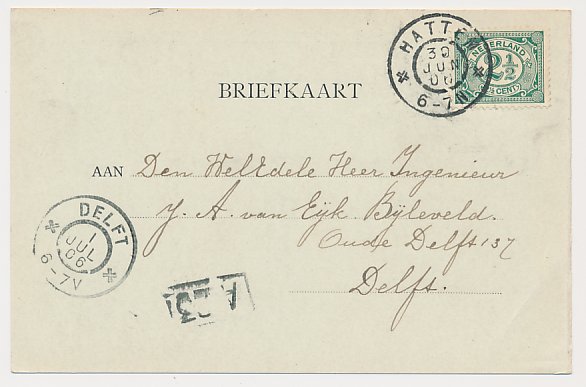 HATTEM
30
JUN
06
6-7N
NEDERLAND
2½
CENT
BRIEFKAART
AAN Den WelEdele Heer Ingenieur
J. A. van Eyk Byleveld.
Oude Delft 137
Delft.
DELFT
1
JUL
06
6-7V